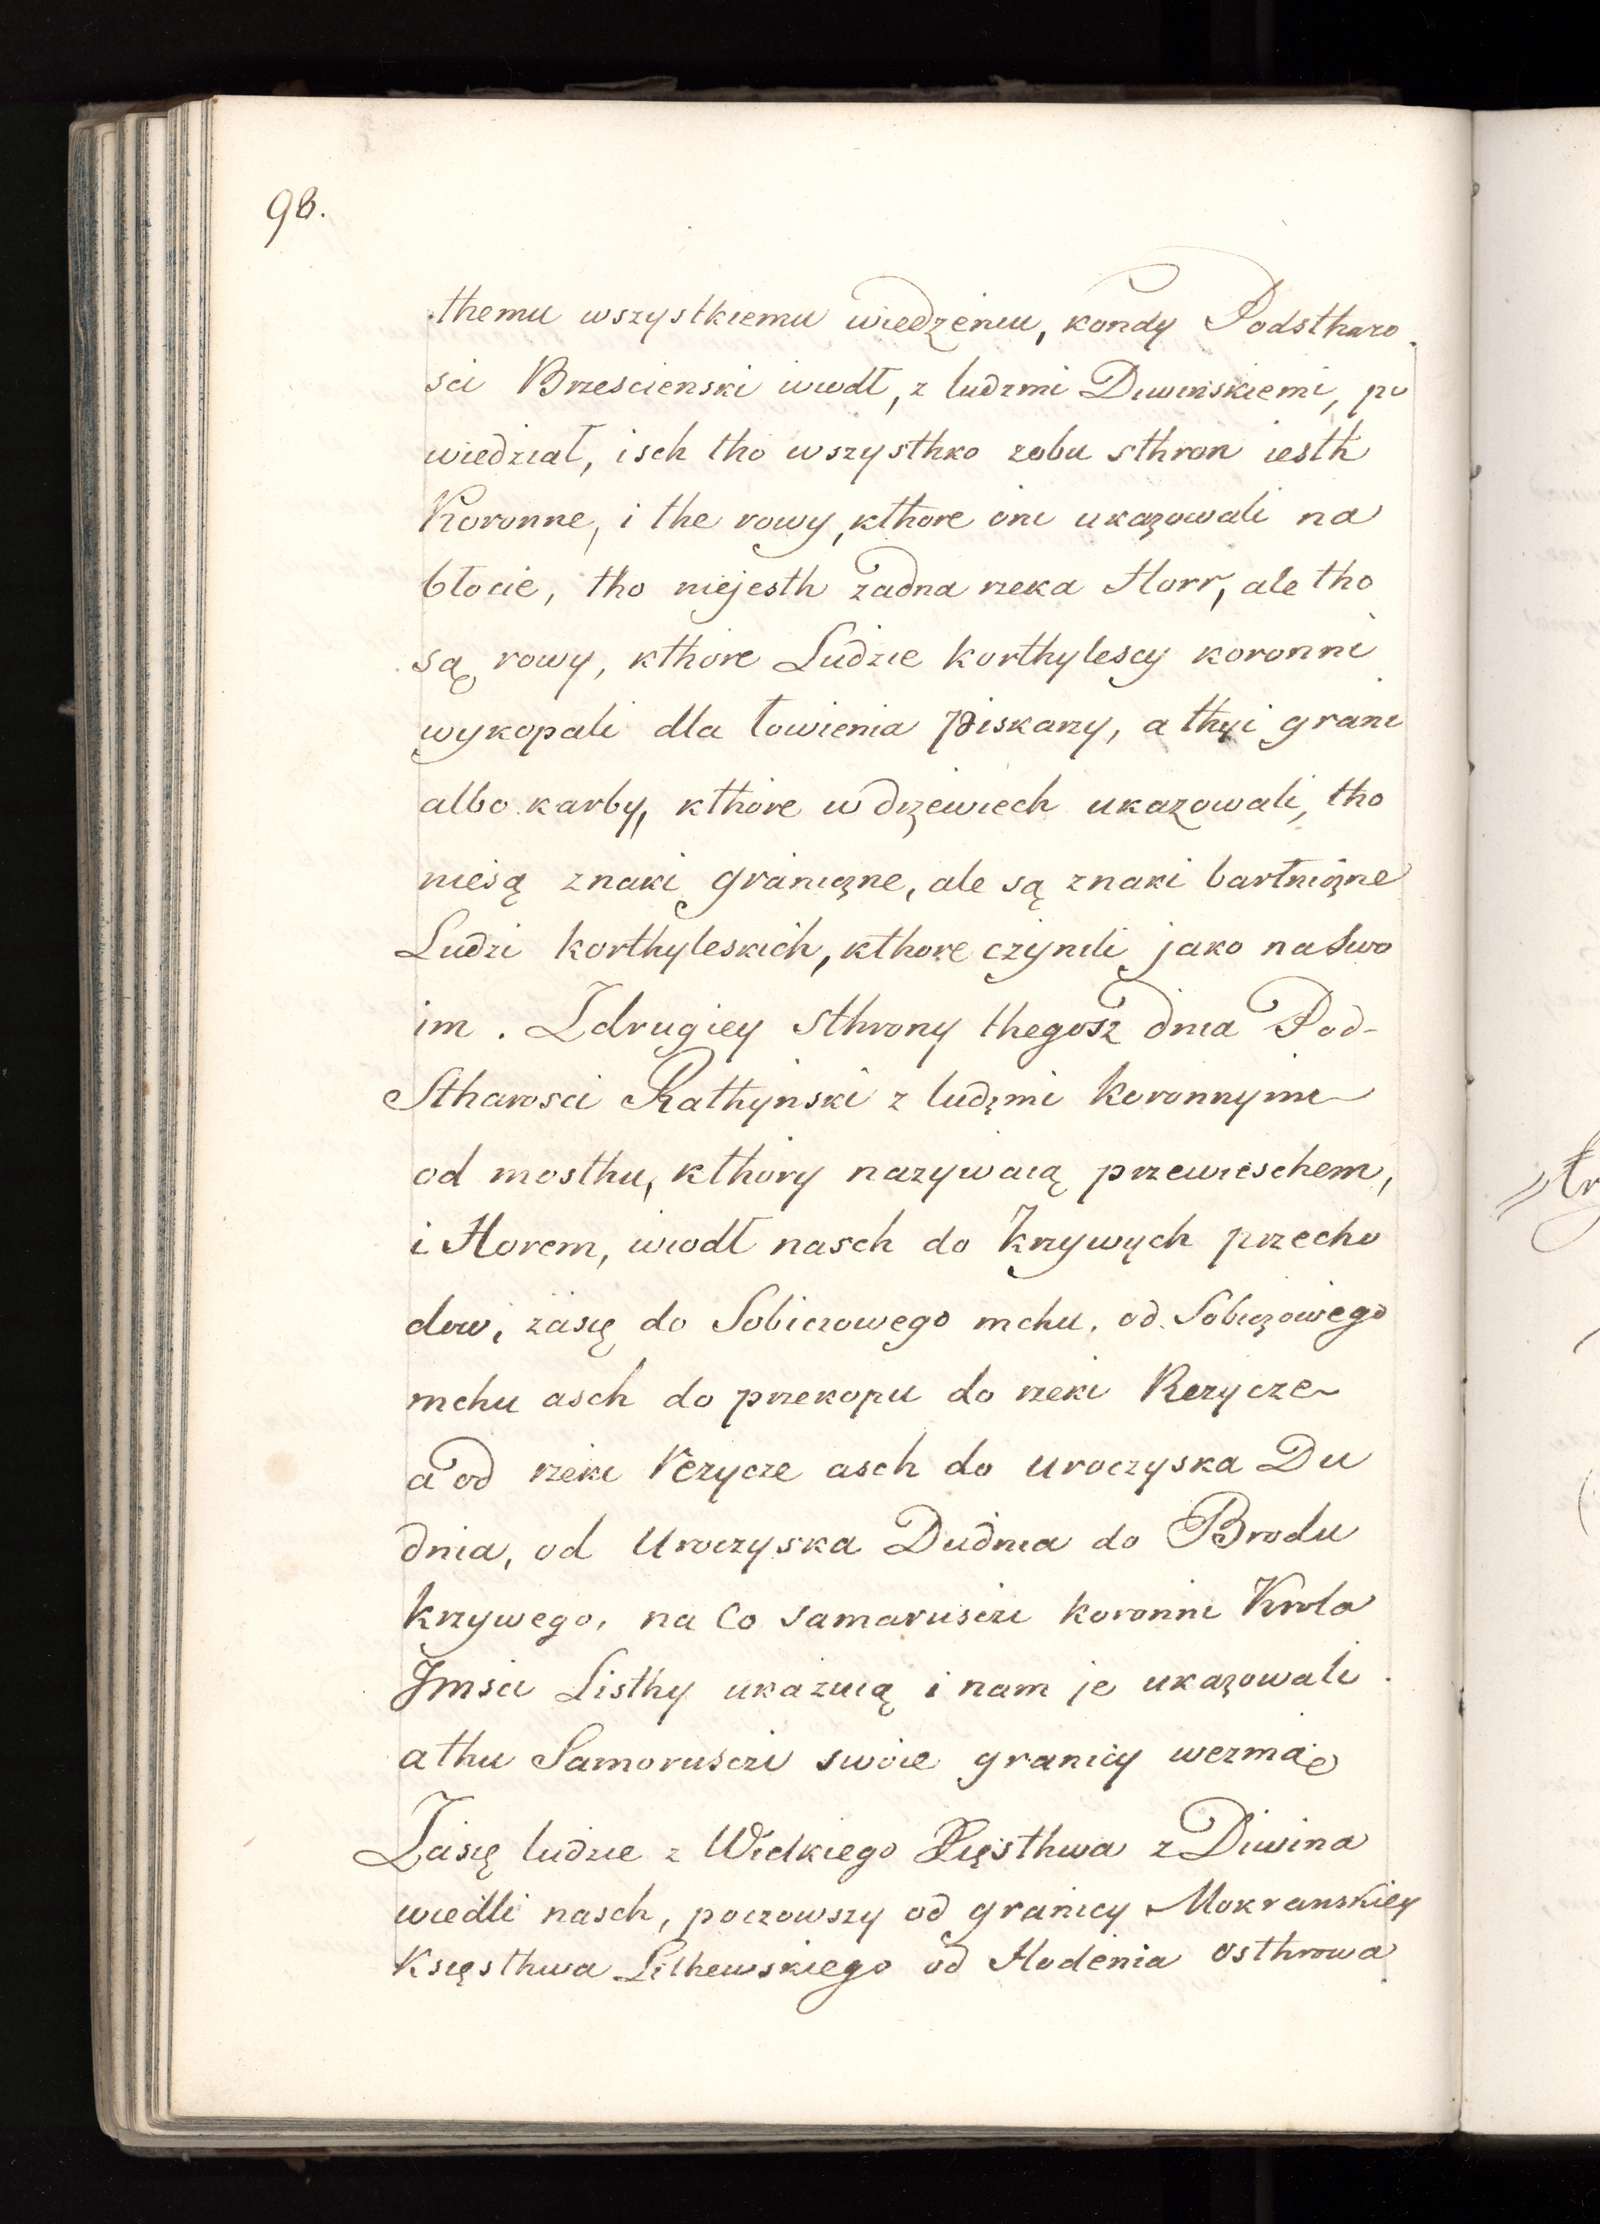 98.
themu wszystkiemu wiedzeniu, kondy Podstharo
sci Brzescienski wiodł, z ludzmi Diwinskiemi, po
wiedział, isch tho wszysthko zobu sthron iesth
Koronne, i the rowy, kthore oni ukazowali na
błocie, tho niejesth żadna rzeka Horr, ale tho
są rowy, kthore Ludzie korthylescy koronni
wykopali dla łowienia Piskarzy, a thyi grani
albo karby, kthore w drzewiech ukazowali, tho
niesą znaki graniczne, ale są znaki bartniczne
Ludzi korthyleskich, kthore czynili jako na Swo
im. Zdrugiey sthrony thegosz dnia Pod-
Stharosci Rathyński z ludzmi Koronnymi
od mosthu, kthory nazywaią przewieschem,
i Horem, wiodł nasch do Krzywych przecho
dow, zasię do Sobiczowego mchu, od Sobiczowego
mchu asch do przekopu do rzeki Rezycze
a od rzeki Rezycze asch do uroczyska Du
dnia, od Uroczyska Dudnia do Brodu
krzywego, na Co Samaruscizi koronni Krola
Jmsci Listhy ukazuią i nam je ukazowali
a thu Samoruscizi swoie granicy wezmą
Zasię ludzie z Wielkiego Xięsthwa z Diwina
wiedli nasch, poczowszy od granicy Mokranskiey
Księsthwa Lithewskiego od Hodenia osthrowa